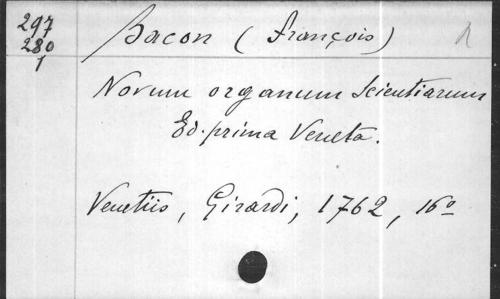 297 Bacon (François)
280
1
Novum organum scientiarum
Ed. prima Veneta.
Venetiis, Girardi, 1762, 16º